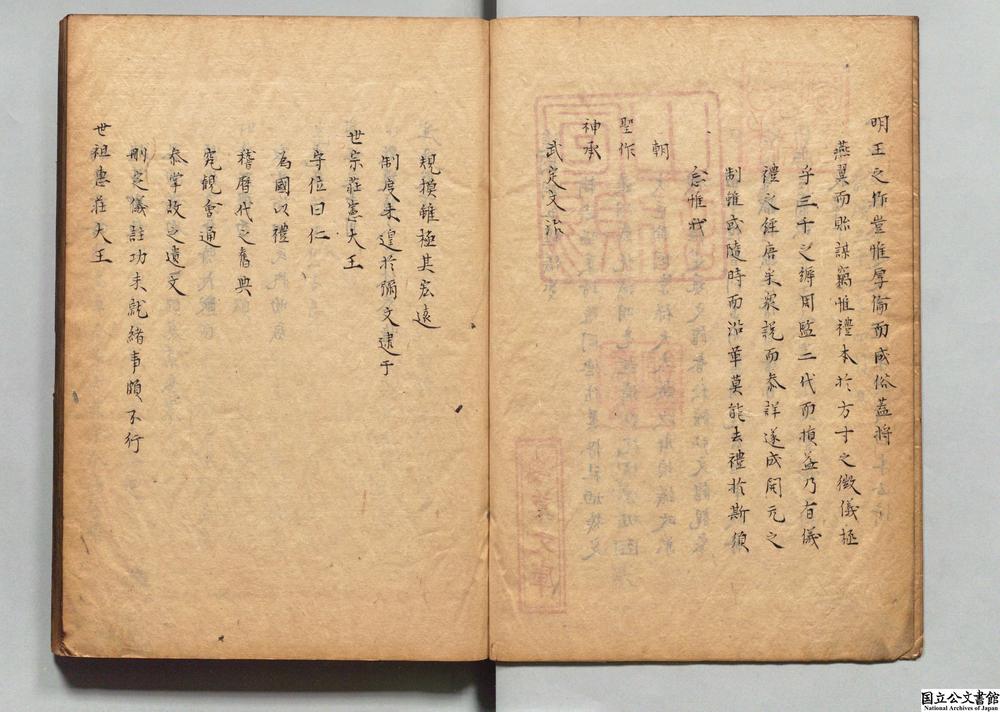 明王之作豈惟厚倫而成俗蓋將
燕翼而貽謀竊惟禮本於方寸之微儀極
乎三千之縟周監二代而損益乃有儀
禮之經唐采衆說而叅詳遂成開元之
制雖或隨時而沿革莫能去禮於斯須
恭惟我
朝
聖作
神承
武定文治
規模雖極其宏遠
制度未遑於彌文逮于
世宗莊憲大王
守位曰仁
爲國以禮
稽曆代之舊典
究觀會通
叅掌故之遺文
刪定儀註功未就緖事頗不行
世祖惠莊大王
国立公文書館
National Archives of Japan